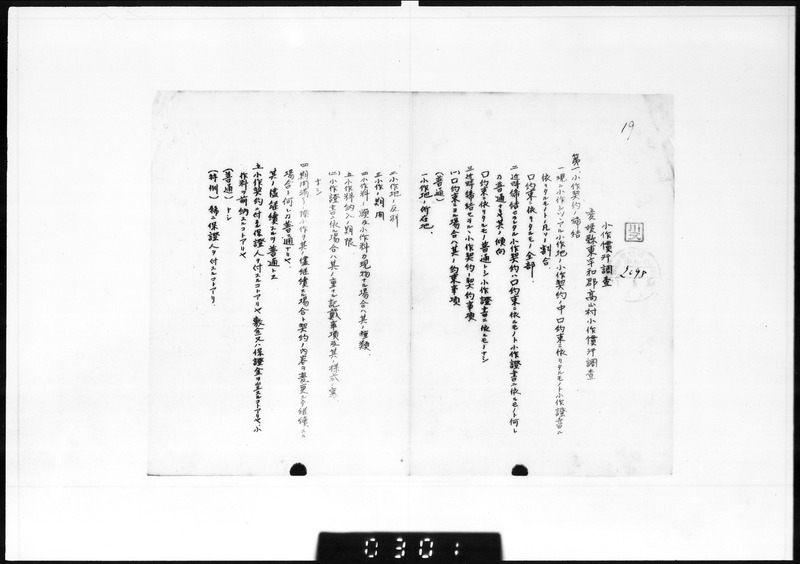 19
小作慣行調査
愛媛縣東宇和郡高山村小作慣行調査
第一 小作契約ノ締結
一 現ニ小作シツヽアル小作地ノ小作契約ノ中口約束ニ依リタルモノト小作證書ニ
依リタルモノトノ凡ソノ割合
口約束ニ依リタルモノ全部
二 近時締結セラルヽ小作契約ハ口約束ニ依ルモノト小作證書ニ依ルモノト何レ
カ普通ナリヤ其ノ傾向
口約束ニ依リタルモノ普通トシ小作證書ニ依ルモノナシ
三 近時締結セラルヽ小作契約ノ契約事項
(一) 口約束ニヨル場合ハ其ノ約束事項
(普通)
一 小作地ノ所在地
二 小作地ノ反別
三 小作ノ期間
四 小作料ノ額及小作料カ現物ナル場合ハ其ノ種類
五 小作料納入ノ期限
(二) 小作證書ニ依ル場合ハ其ノ重ナル記載事項及其ノ様式ノ寫
ナシ
四 期間満了ノ際小作ヲ其ノ儘継續スル場合ト契約ノ内容ヲ変更シテ継續スル
場合ト何レカ普通ナリヤ
其ノ儘継續スルヲ普通トス
五 小作契約ニ付キ保證人ヲ付スルコトアリヤ敷金又ハ保證金ヲ
コトアリヤ小
作料ヲ前納スルコトアリヤ
(普通) ナシ
(特例) 稀ニ保證人ヲ付スルコトアリ
0301